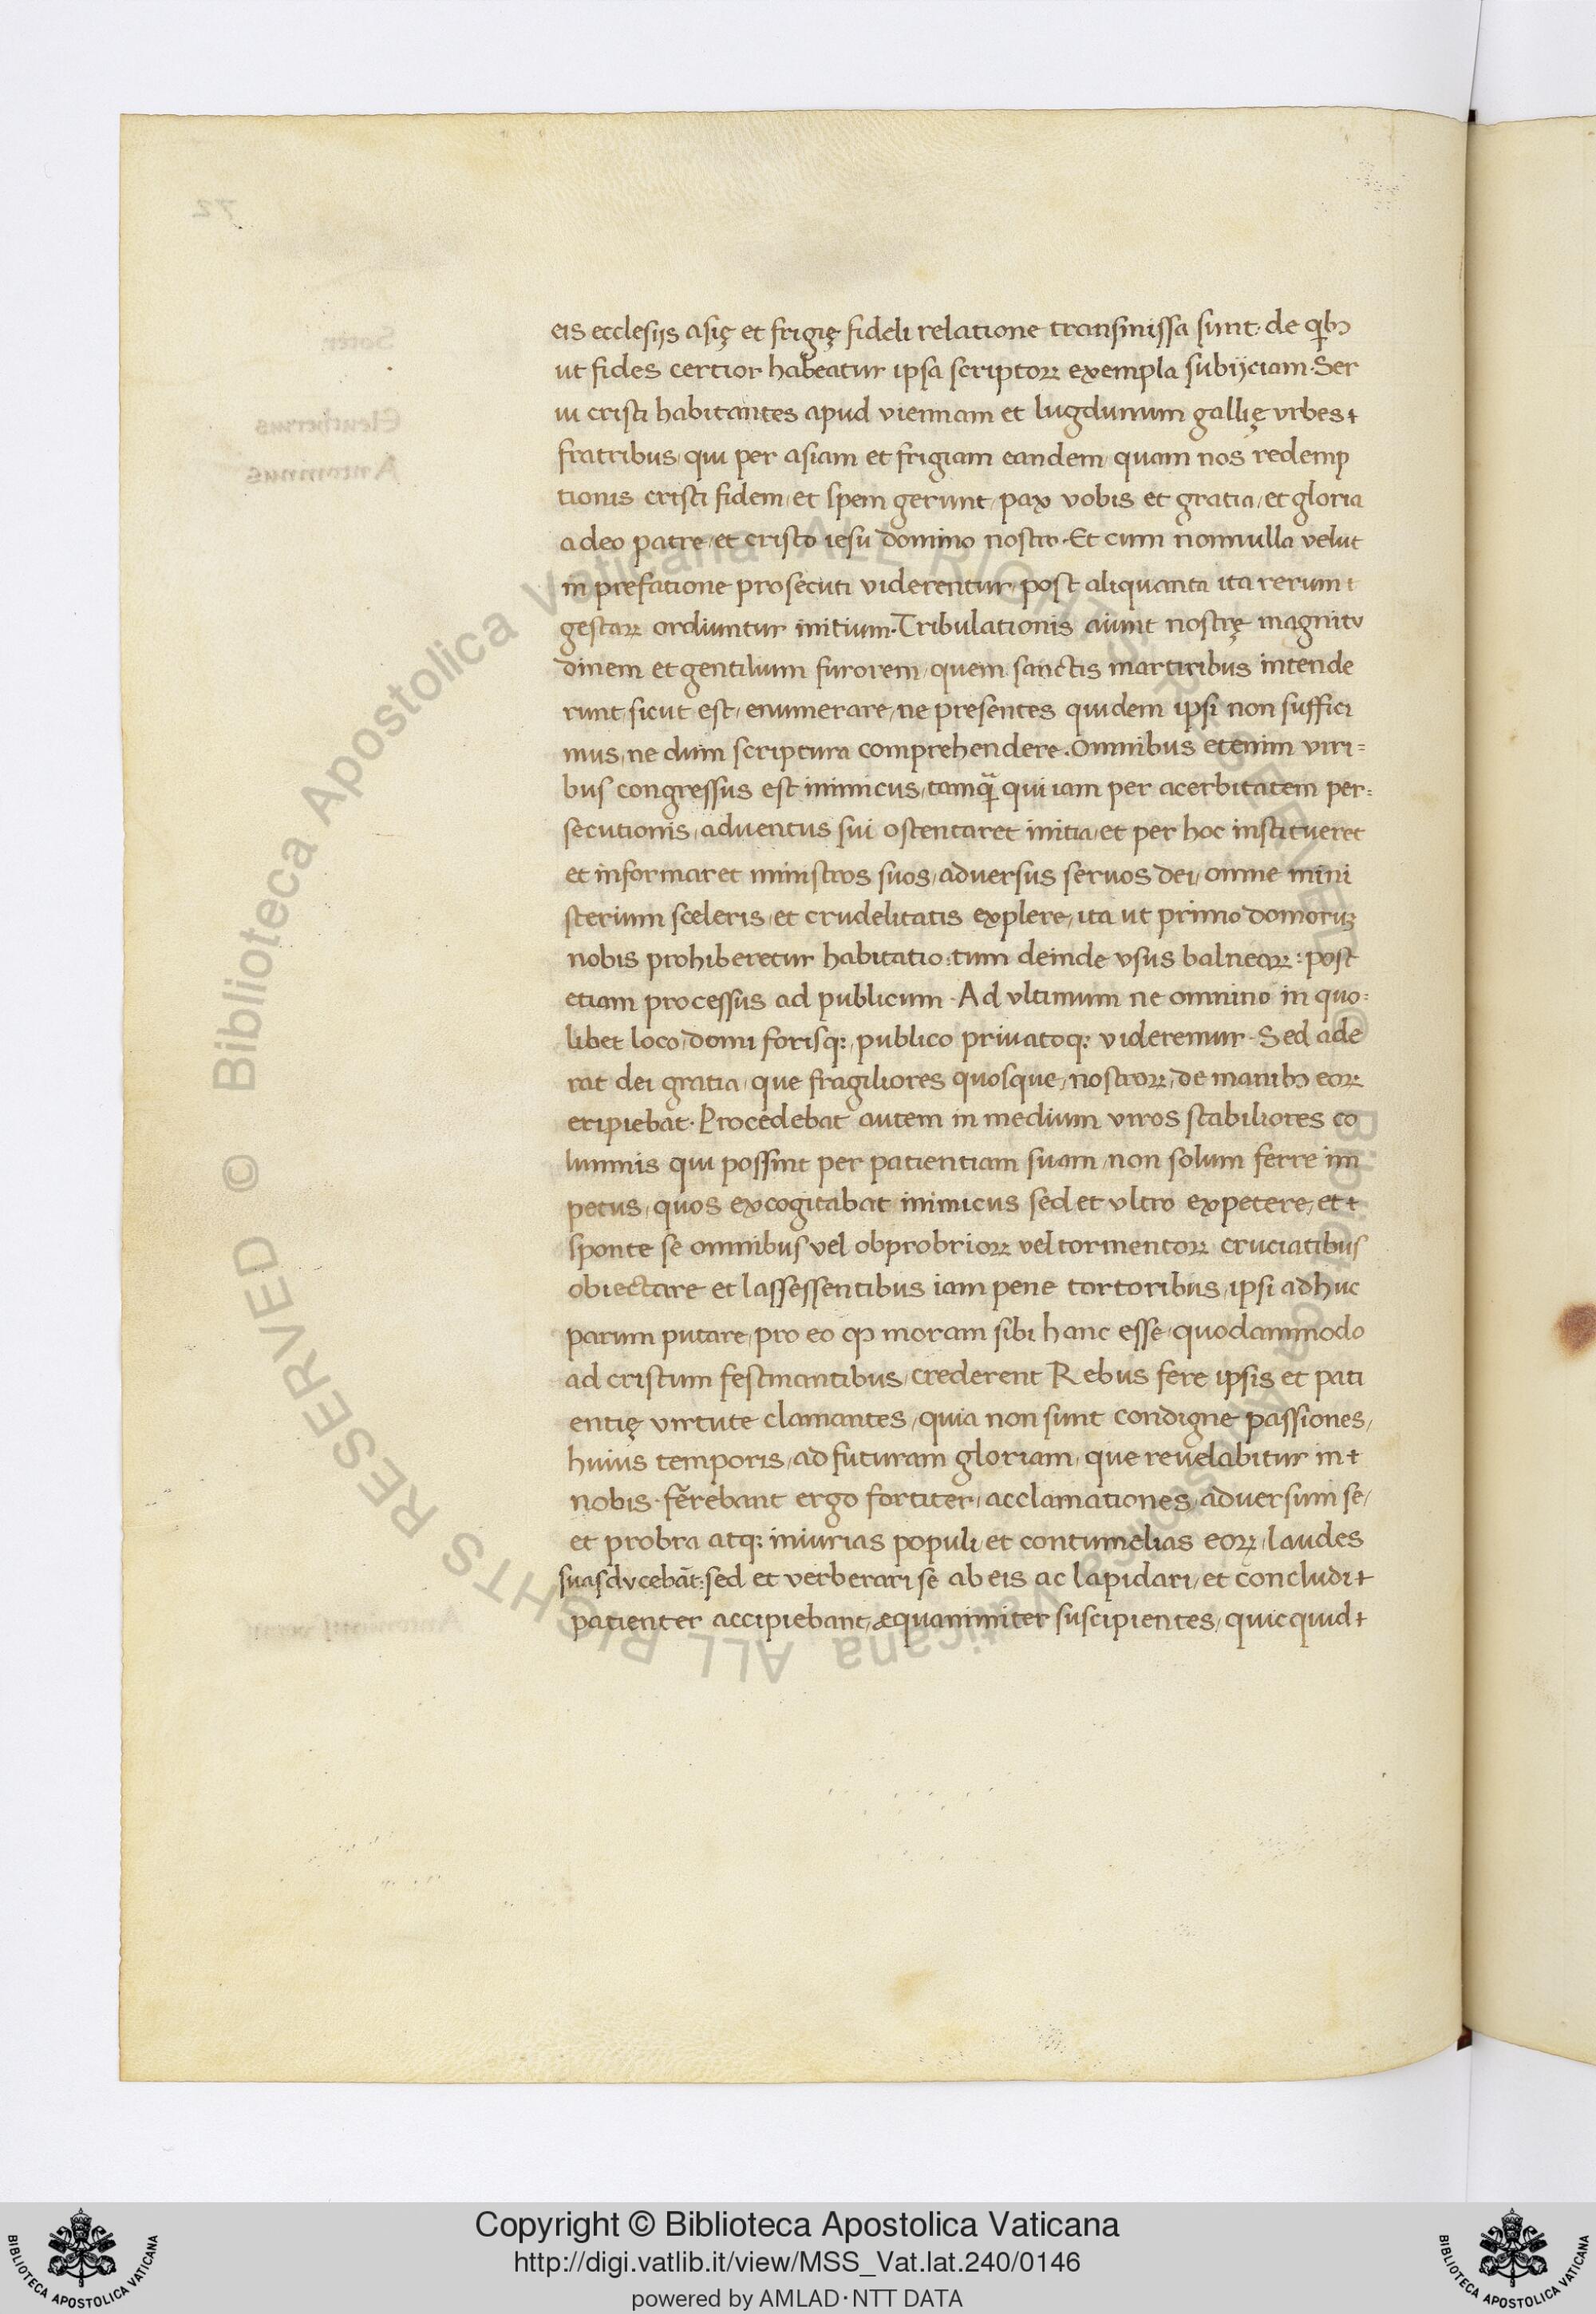 eis ecclesijs asię et frigię fideli relatione transmissa sunt: de qͥbꝫ
ut fides certior habeatur ipsa scriptoꝝ exempla subijciam. Ser
ui cristi habitantes apud viennam et lugdunum gallię vrbes+
fratribus, qui per asiam et frigiam eandem, quam nos redemp
tionis cristi fidem, et spem gerunt, pax vobis et gratia, et gloria
a deo patre, et cristo iesu domino nostro. Et cum nonnulla velut
in prefatione prosecuti viderentur, post aliquanta ita rerum
gestaꝝ ordiuntur initium. Tribulationis aiunt nostrę magnitu
dinem et gentilium furorem, quem sanctis martiribus intende
runt, sicut est, enumerare, ne presentes quidem ipsi non suffici
mus, ne dum scriptura comprehendere. Omnibus etenim viri=
bus congressus est inimicus, tamqͣ̃ qui iam per acerbitatem per=
secutionis, aduentus sui ostentaret initia, et per hoc institueret
et informaret ministros suos, aduersus seruos dei, omne mini
sterium sceleris, et crudelitatis explere, ita ut primo domoruꝫ
nobis prohiberetur habitatio: tum deinde vsus balneoꝝ: post
etiam processus ad publicum. Ad vltimum ne omnino in quo=
libet loco, domi forisqꝫ, publico priuatoqꝫ videremur. Sed ade
rat dei gratia, que fragiliores quosque, nostroꝝ, de manibꝫ eoꝝ
eripiebat. Procedebat autem in medium viros stabiliores co
lumnis qui possint per patientiam suam, non solum ferre im
petus, quos excogitabat inimicus sed et vltro expetere, et+
sponte se omnibus vel obprobrioꝝ vel tormentoꝝ cruciatibus
obiectare et lassessentibus iam pene tortoribus, ipsi adhuc
parum putare, pro eo ꝙ moram sibi hanc esse, quodammodo
ad cristum festinantibus, crederent Rebus fere ipsis et pati
entię virtute clamantes, quia non sunt condigne passiones,
huius temporis, ad futuram gloriam, que reuelabitur in+
nobis. ferebant ergo fortiter, acclamationes, aduersum se,
et probra atqꝫ iniurias populi, et contumelias eoꝝ, laudes
suas ducebāt: sed et verberari se ab eis ac lapidari, et concludi+
patienter accipiebant, æquanimiter suscipientes, quicquid+
Copyright © Biblioteca Apostolica Vaticana
http://digi.vatlib.it/view/MSS_Vat.lat.240/0146
powered by AMLAD·NTT DATA
© Biblioteca Apostolica Vaticana ALL RIGHTS RESERVED
© Biblioteca Apostolica Vaticana ALL RIGHTS RESERVED
BIBLIOTECA APOSTOLICA VATICANA
BIBLIOTECA APOSTOLICA VATICANA